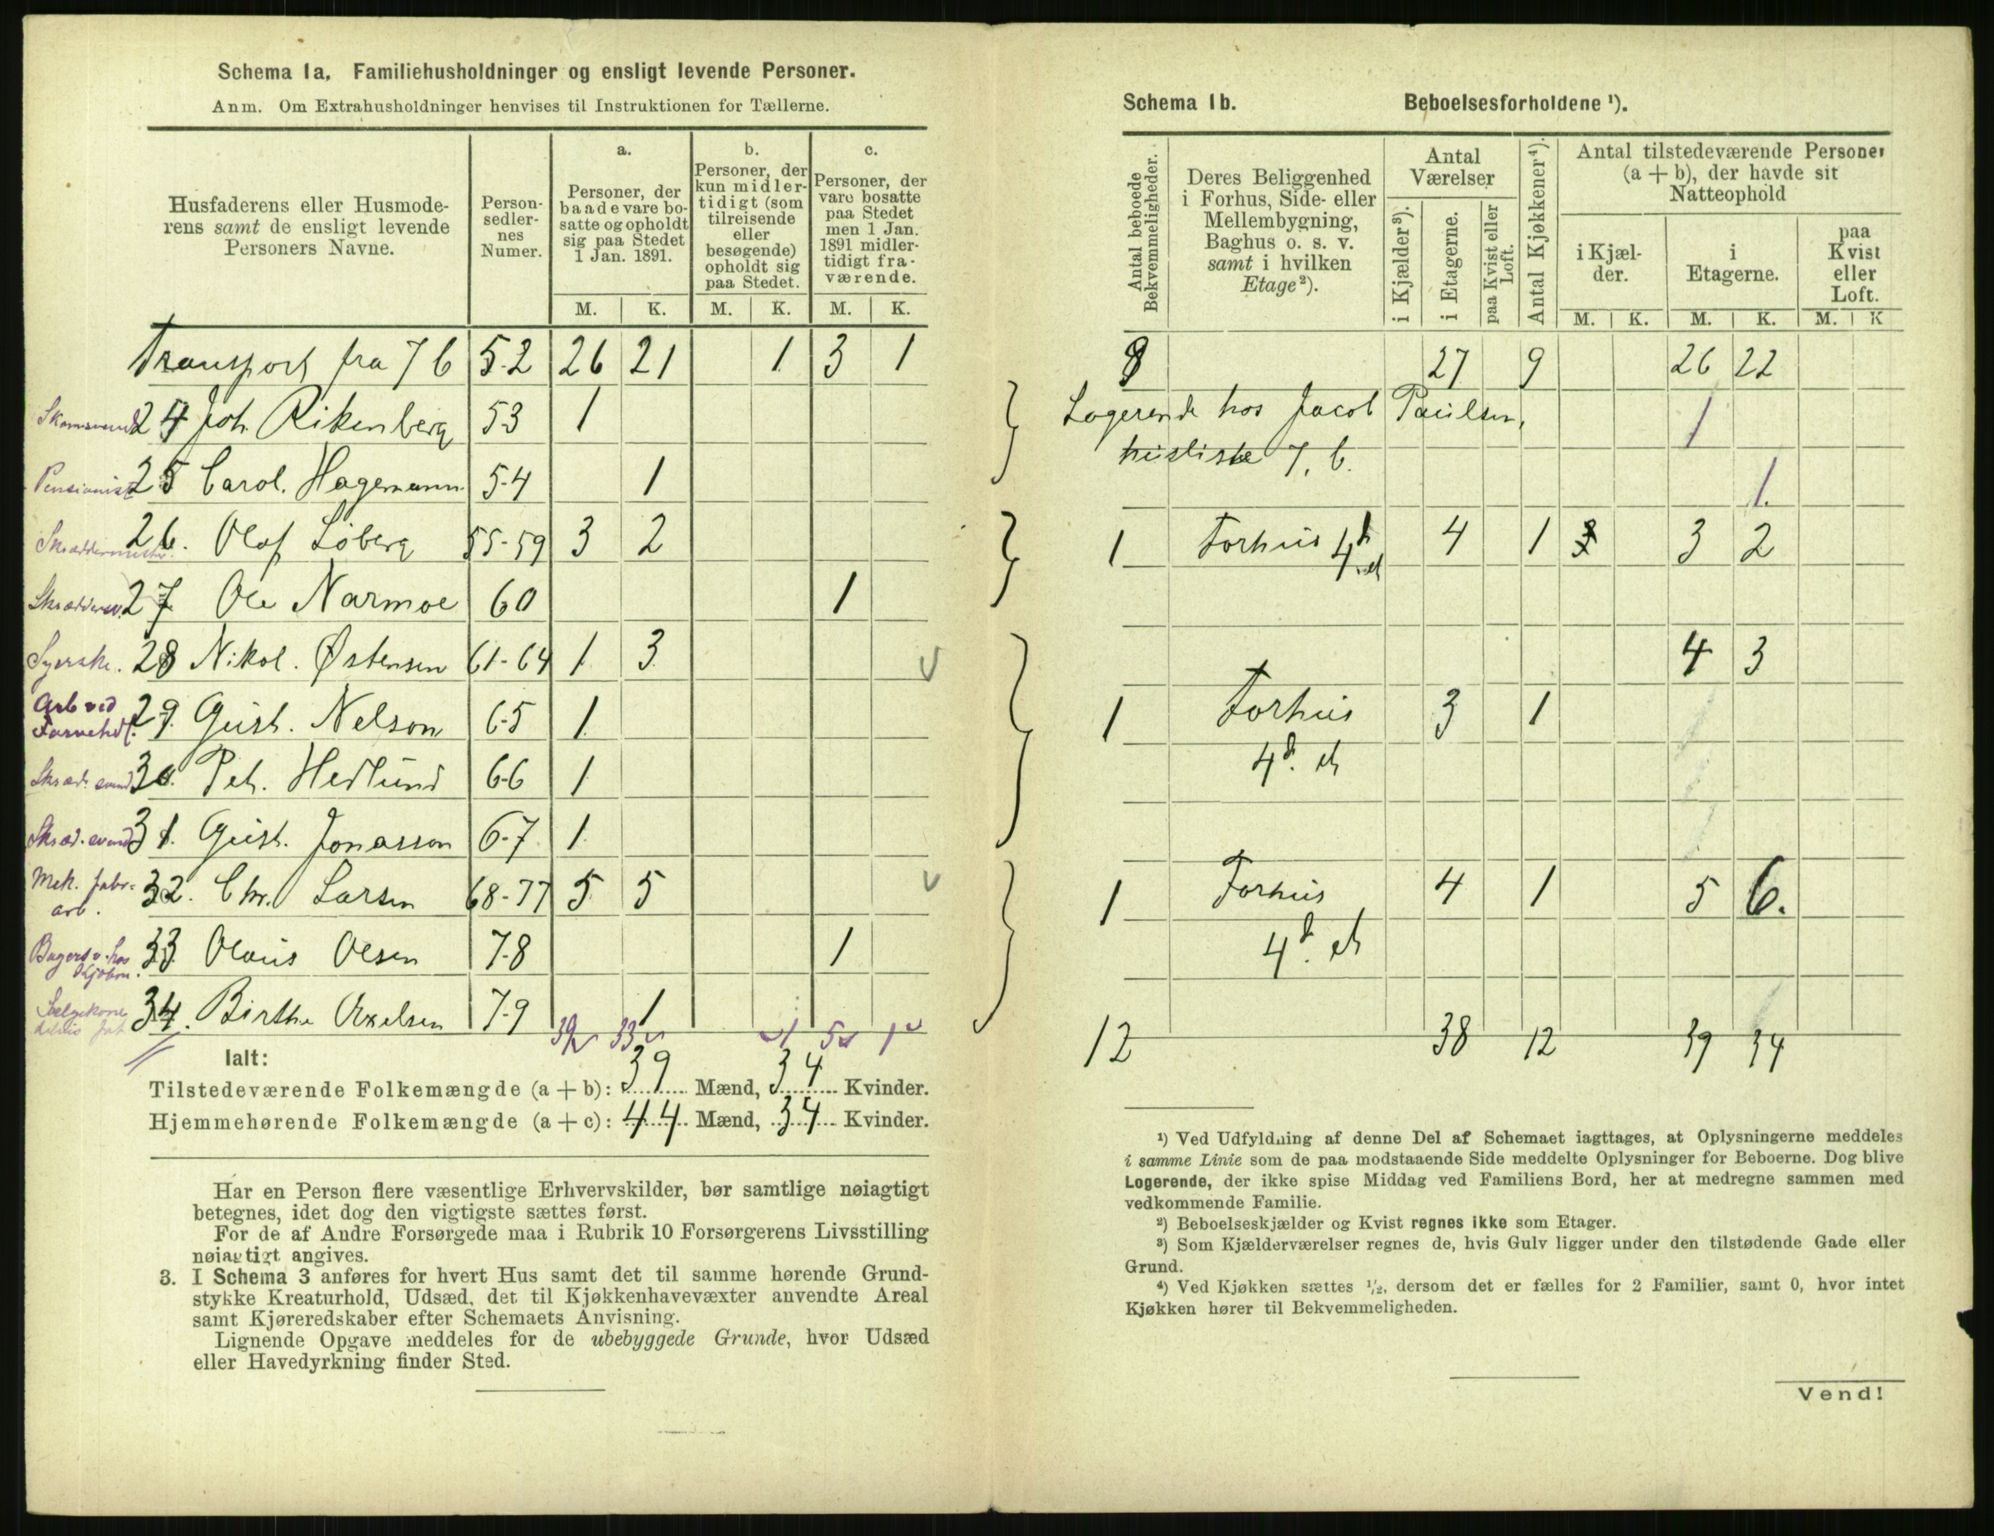 Schema 1a. Familiehusholdninger og ensligt levende Personer.
Anm. Om Extrahusholdninger henvises til Instruktionen for Tællerne.
Husfaderens eller Husmoderens samt de ensligt levende Personers Navne.
Person-sedlernes Numer.
a. Personer, der baade vare bosatte og opholdt sig paa Stedet 1 Jan. 1891.
b. Personer, der kun midlertidigt (som tilreisende eller besøgende) opholdt sig paa Stedet.
c. Personer, der vare bosatte paa Stedet men 1 Jan. 1891 midlertidigt fraværende.
M. K. M. K. M. K.
Transport fra 7 b 52 26 21 1 3 1
24 Joh. Rikenberg 53 1
Pensionist 25 Carol. Hagemann 54 1
Skræddermester 26. Olof Loberg 55-59 3 2
Skræddersv. 27 Ole Narmoe 60 1
Syerske. 28 Nikol. Østensen 61-64 1 3
Arb ved Farvehdl. 29. Gust. Nelson 65 1
Skræd. svend 30. Pet. Hedlund 66 1
Skræd. svend 31. Gust. Jonasson 67 1
Mek. Fabr-arb. 32. Chr. Larsen 68-77 5 5
Bagersv. hos 33 Olaus Olsen 78 1
34. Birthe Axelsen 79 1
39 33 1 5 1
Ialt:
Tilstedeværende Folkemængde (a + b): 39 Mænd, 34 Kvinder.
Hjemmehørende Folkemængde (a + c): 44 Mænd, 34 Kvinder.
Har en Person flere væsentlige Erhvervskilder, bør samtlige nøiagtigt
betegnes, idet dog den vigtigste sættes først.
For de af Andre Forsørgede maa i Rubrik 10 Forsørgerens Livsstilling
nøiagtigt angives.
3. I Schema 3 anføres for hvert Hus samt det til samme hørende Grund-
stykke Kreaturhold, Udsæd, det til Kjøkkenhavevæxter anvendte Areal
samt Kjøreredskaber efter Schemaets Anvisning.
Lignende Opgave meddeles for de ubebyggede Grunde, hvor Udsæd
eller Havedyrkning finder Sted.
Schema 1b. Beboelsesforholdene ¹).
Antal beboede Bekvemmeligheder.
Deres Beliggenhed i Forhus, Side- eller Mellembygning, Baghus o. s. v. samt i hvilken Etage²).
Antal Værelser
i Kjælder³).
i Etagerne.
paa Kvist eller Loft.
Antal Kjøkkener⁴).
Antal tilstedeværende Personer (a + b), der havde sit Natteophold
i Kjælder.
i Etagerne.
paa Kvist eller Loft.
M. K. M. K. M. K
9 27 9 26 22
Logerende hos Jacob Paulsen, 1
husliste 7, b. 1.
1 Forhus 4d et 4 1 3 2
4 3
1 Forhus 3 1
4d. et
1 Forhus 4 1 5 6.
4d. et
12 38 12 39 34
¹) Ved Udfyldning af denne Del af Schemaet iagttages, at Oplysningerne meddeles
i samme Linie som de paa modstaaende Side meddelte Oplysninger for Beboerne. Dog blive
Logerende, der ikke spise Middag ved Familiens Bord, her at medregne sammen med
vedkommende Familie.
²) Beboelseskjælder og Kvist regnes ikke som Etager.
³) Som Kjælderværelser regnes de, hvis Gulv ligger under den tilstødende Gade eller
Grund.
⁴) Ved Kjøkken sættes ¹/₂, dersom det er fælles for 2 Familier, samt 0, hvor intet
Kjøkken hører til Bekvemmeligheden.
Vend!